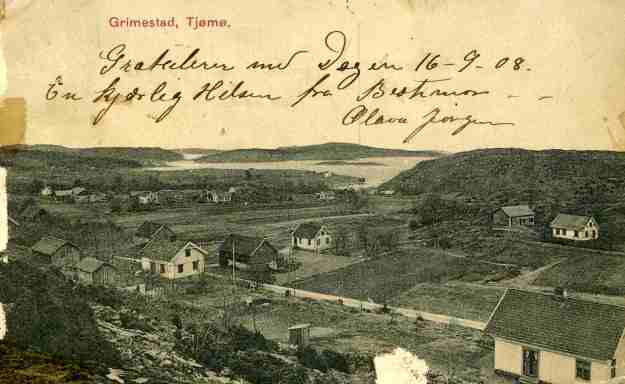 Grimestad, Tjømø.
Gratulerer med Dagen 16-9-08.
En kjærlig Hilsen fra Bestemor - -
Olava Jørgen